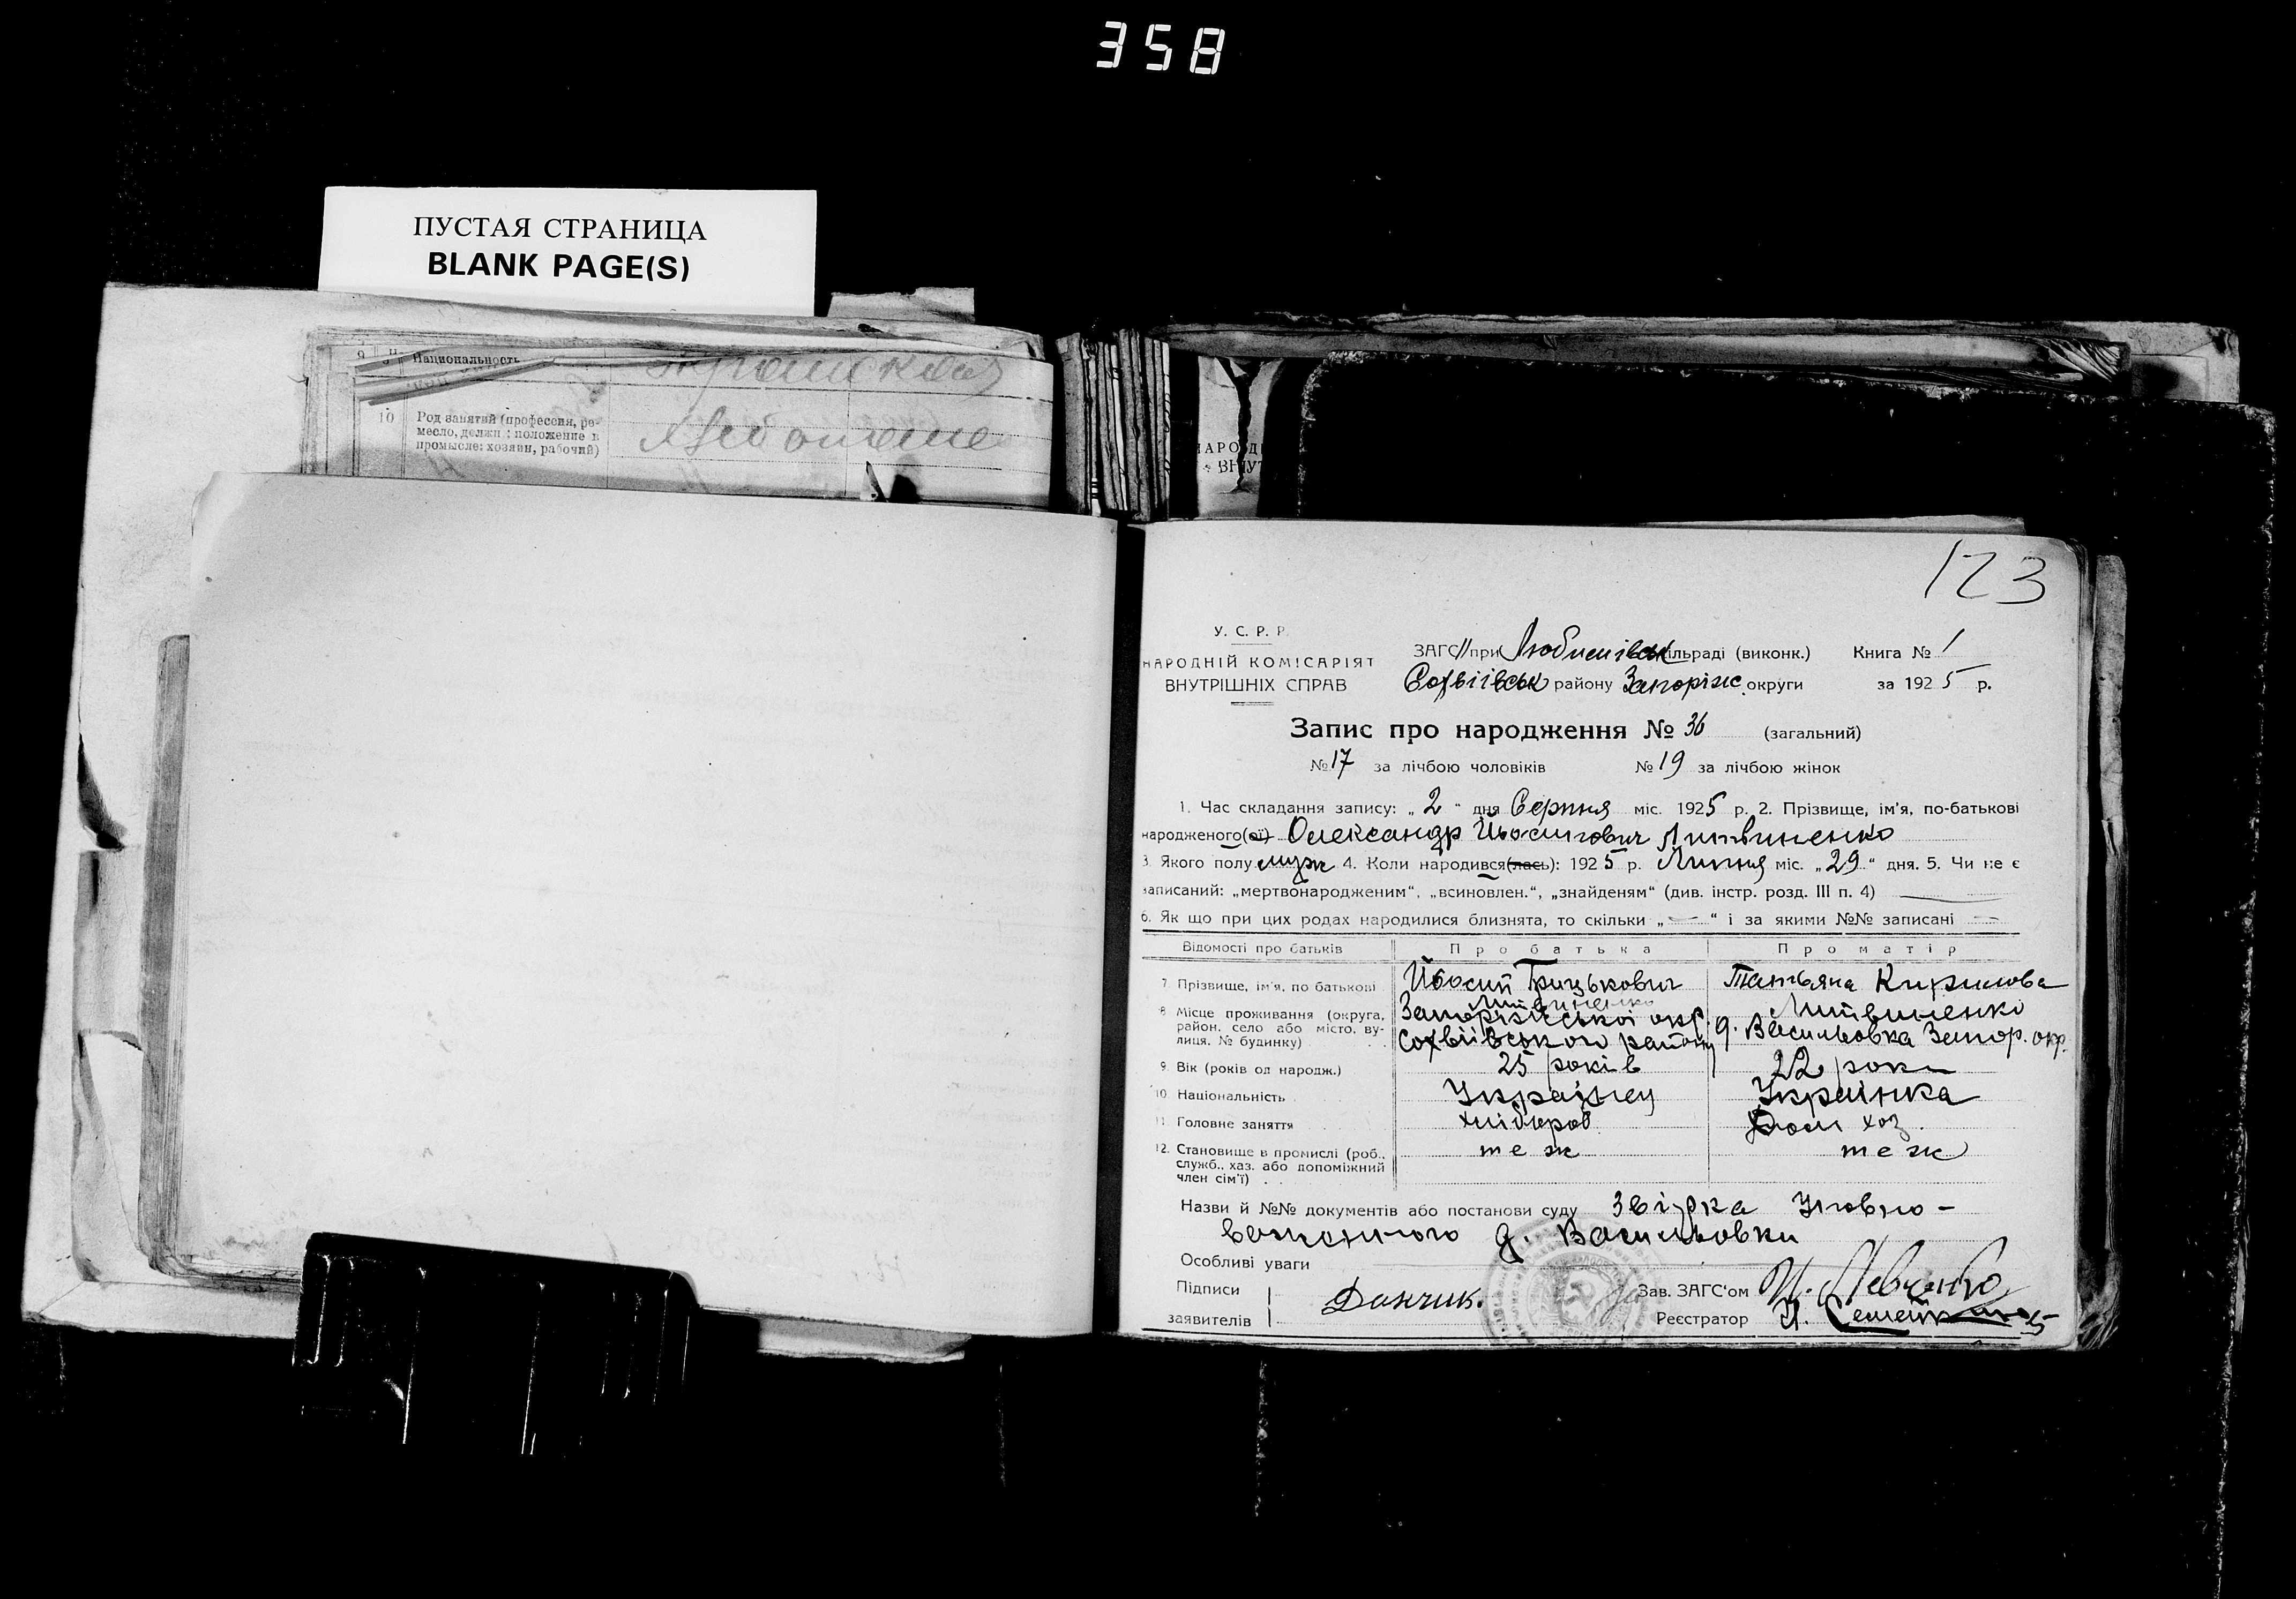 358
ПУСТАЯ СТРАНИЦА
BLANK PAGE(S)
Национальность
10 Род занятий (профессия, ре-
месло, должн : положение в
промысле: хозяин, рабочий)
123
У. С. Р. Р.
НАРОДНІЙ КОМІСАРІЯТ
ВНУТРІШНІХ СПРАВ
ЗАГС при Любимівськ сільраді (виконк.) Книга № 1
Софіївськ району Запоріж. округи за 1925 р.
Запис про народження № 36 (загальний)
№ 17 за лічбою чоловіків № 19 за лічбою жінок
1. Час складання запису: „ 2 “ дня Серпня міс. 1925 р. 2. Прізвище, ім'я, по-батькові
народженого(ої) Олександр Йосипович Литвиненко
3. Якого полу муж 4. Коли народився(лась): 1925 р. Липня міс. „ 29 “ дня. 5. Чи не є
записаний: „мертвонародженим“, „всиновлен.“, „знайденям“ (див. інстр. розд. III п. 4)
6. Як що при цих родах народилися близнята, то скільки „ — “ і за якими №№ записані —
Відомості про батьків Про батька Про матір
7. Прізвище, ім'я, по батькові Йосип Грицькович Литвиненко Татьяна Кирилова Литвиненко
8. Місце проживання (округа, район, село або місто, ву-
лиця, № будинку) Запоріжської окр. Софіївського району д. Васильовка Запор. окр.
9. Вік (років од народж.) 25 років 22 роки
10. Національність Українец Українка
11. Головне заняття хлібороб Дом хоз.
12. Становище в промислі (роб., теж теж
служб., хаз. або допоміжний
член сім'ї)
Назви й №№ документів або постанови суду Звідка Уповно-
важеного д. Васильовки
Особливі уваги
Підписи
заявителів Данчик.
Зав. ЗАГС'ом И. Левченко
Реєстратор